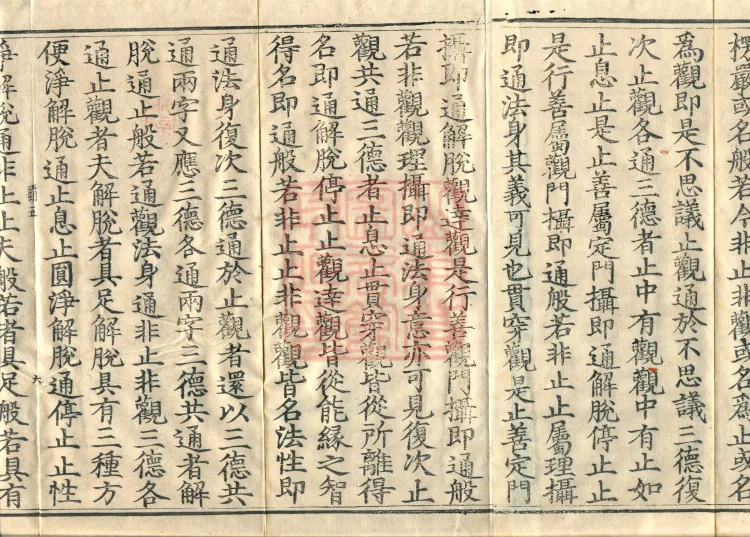 楞嚴或名般若今非止非觀或名爲止或名
爲觀即是不思議止觀通於不思議三德復
次止觀各通三德者止中有觀觀中有止如
止息止是止善屬定門攝即通解脫停止止
是行善屬觀門攝即通般若非止止屬理攝
即通法身其義可見也貫穿觀是止善定門
攝即通解脫觀達觀是行善觀門攝即通般
若非觀觀理攝即通法身意亦可見復次止
觀共通三德者止息止貫穿觀皆從所離得
名即通解脫停止止觀達觀皆從能緣之智
得名即通般若非止止非觀觀皆名法性即
通法身復次三德通於止觀者還以三德共
通兩字又應三德各通兩字三德共通者解
脫通止般若通觀法身通非止非觀三德各
通止觀者夫解脫者具足解脫具有三種方
便淨解脫通止息止圓淨解脫通停止止性
淨解脫通非止止夫般若者具足般若具有
六